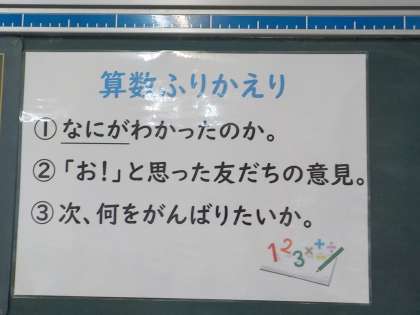 算数ふりかえり
①なにがわかったのか。
②「お!」と思った友だちの意見。
③次、何をがんばりたいか。
123×+÷